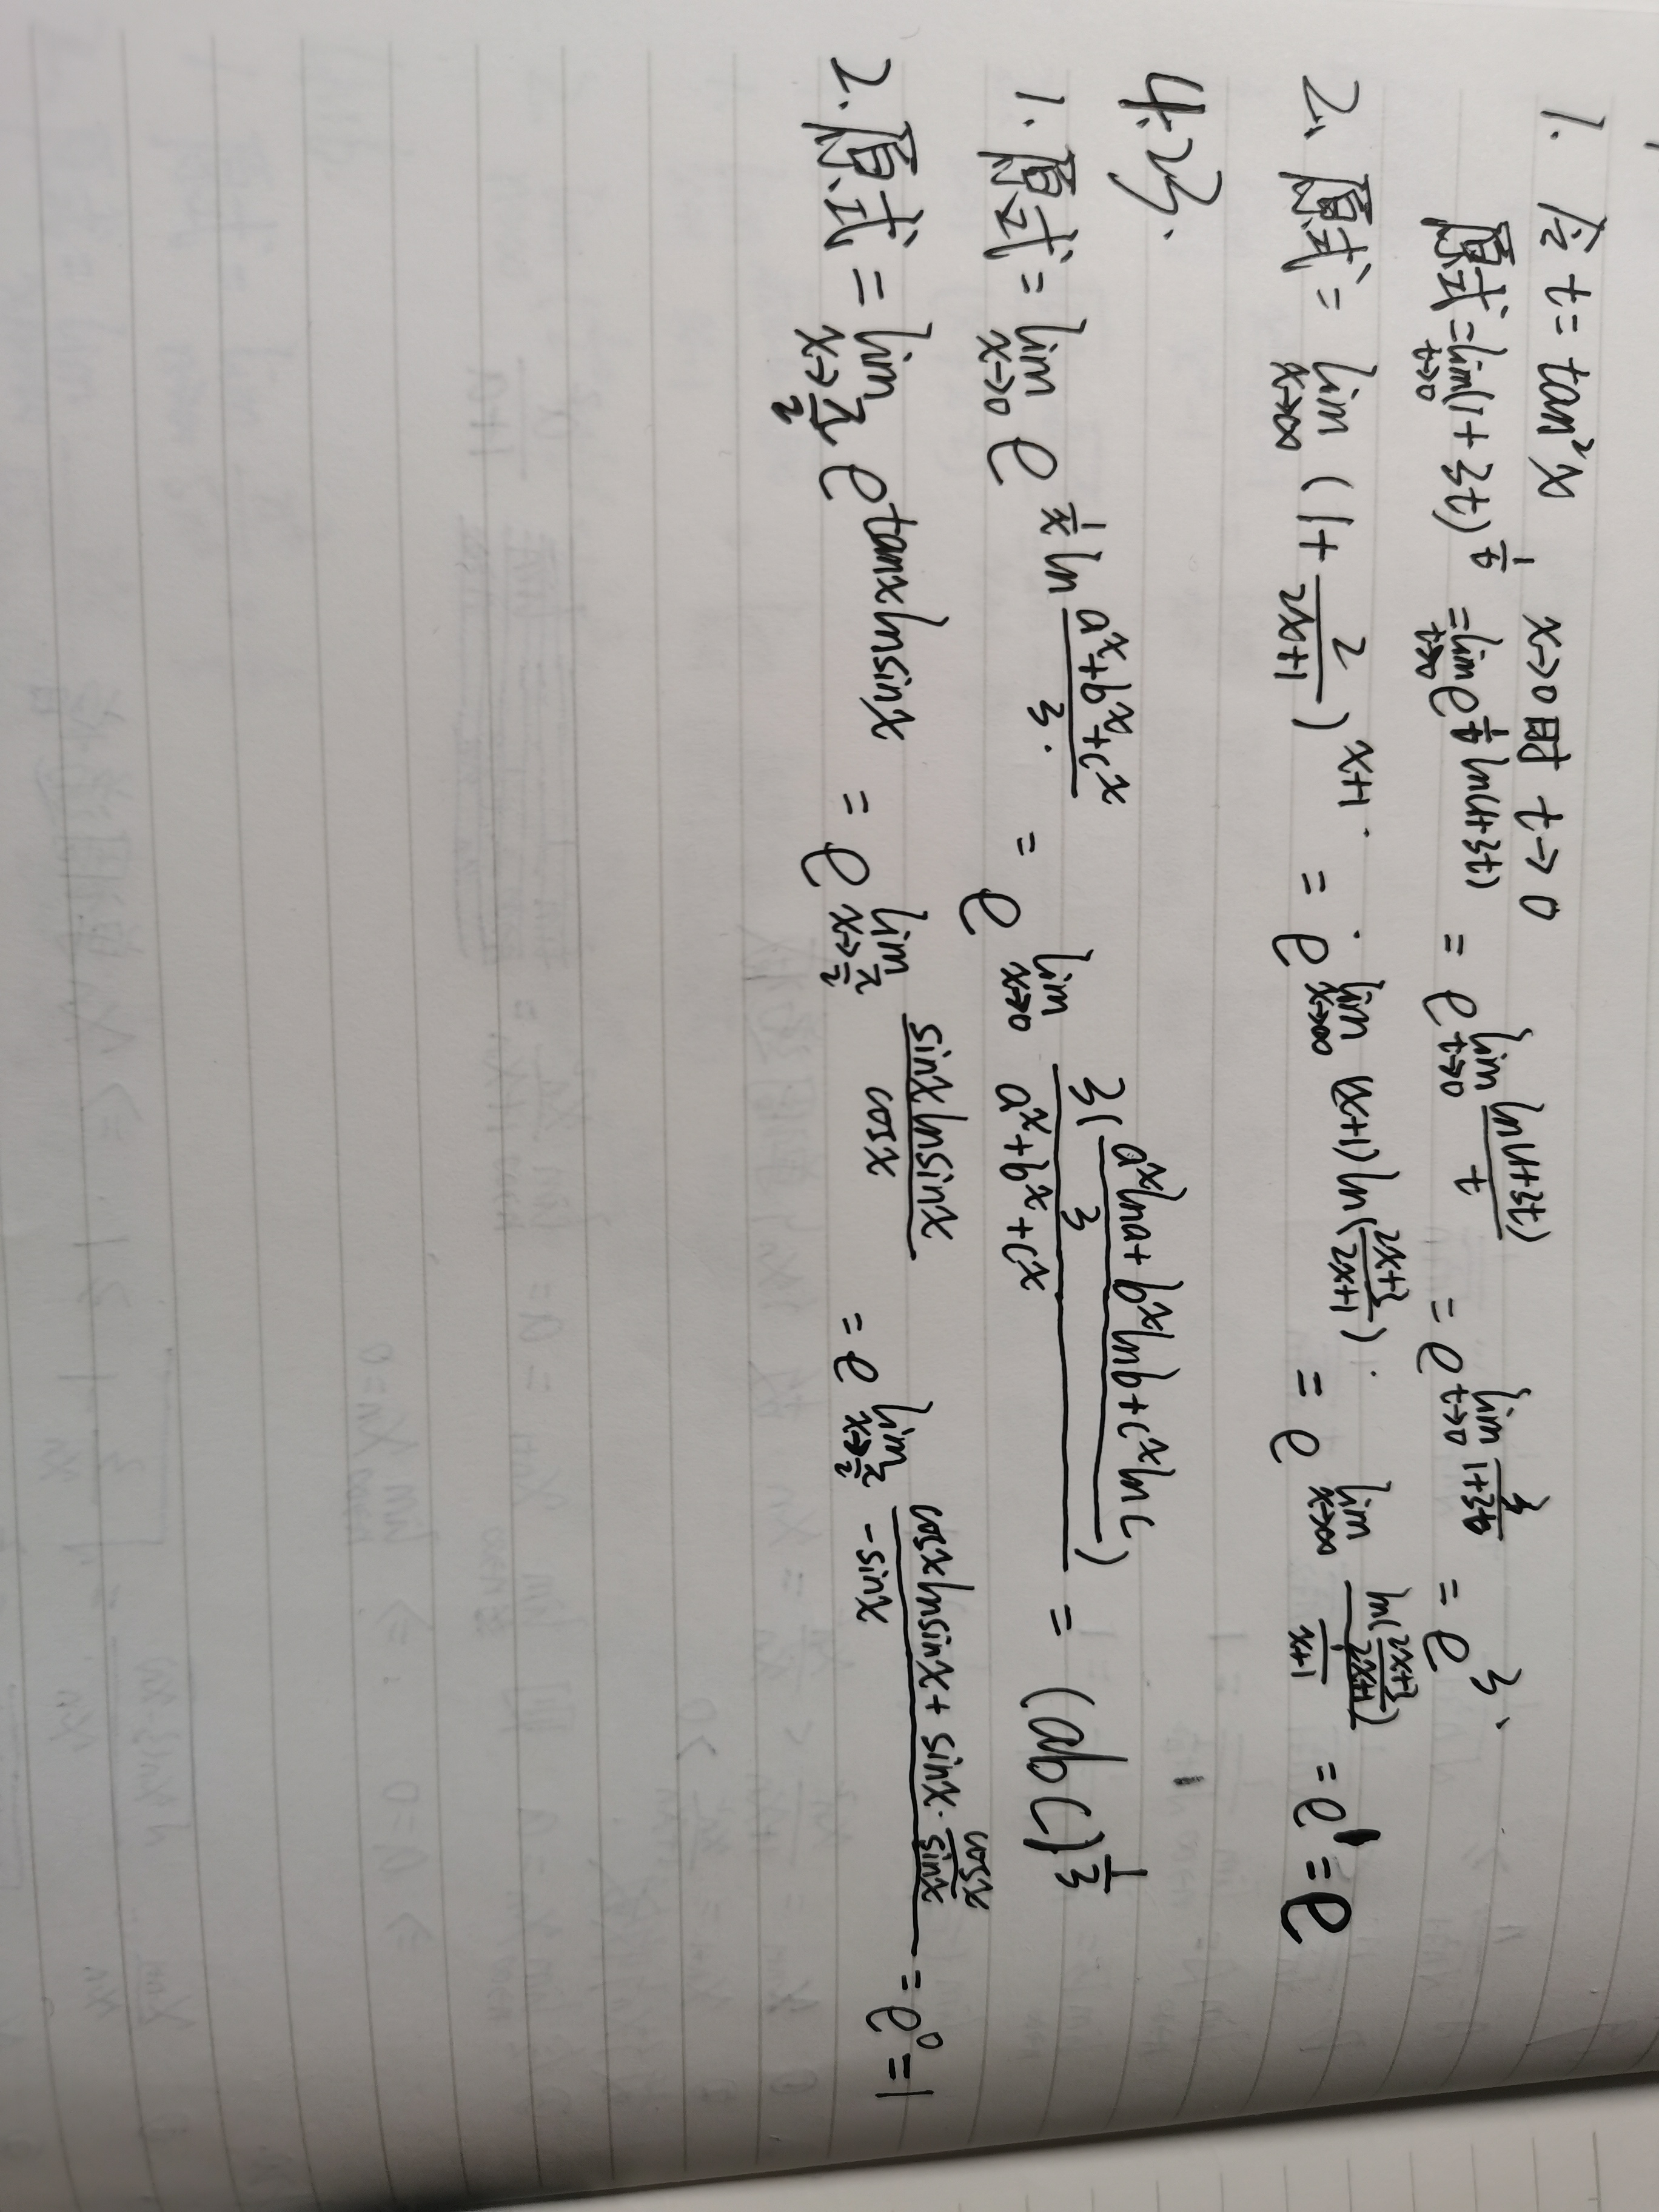 1. 令 t = tan²x x→0时 t→0
原式 = lim_{t→0} (1+3t)^{1/t} = lim_{t→0} e^{1/t ln(1+3t)} = e^{lim_{t→0} ln(1+3t)/t} = e^{lim_{t→0} 3/(1+3t)} = e^3.
2、原式 = lim_{x→∞} (1+ 2/(2x+1))^{x+1} = e^{lim_{x→∞} (x+1) ln((2x+3)/(2x+1))} = e^{lim_{x→∞} ln((2x+3)/(2x+1)) / (1/(x+1))} = e^1 = e
4.23.
1. 原式 = lim_{x→0} e^{1/x ln (a^x+b^x+c^x)/3} = e^{lim_{x→0} 3((a^x lna + b^x lnb + c^x lnc)/3) / (a^x+b^x+c^x)} = (abc)^{1/3}
2. 原式 = lim_{x→π/2} e^{tanx lnsinx} = e^{lim_{x→π/2} sinx lnsinx / cosx} = e^{lim_{x→π/2} (cosx lnsinx + sinx · cosx/sinx) / -sinx} = e^0 = 1